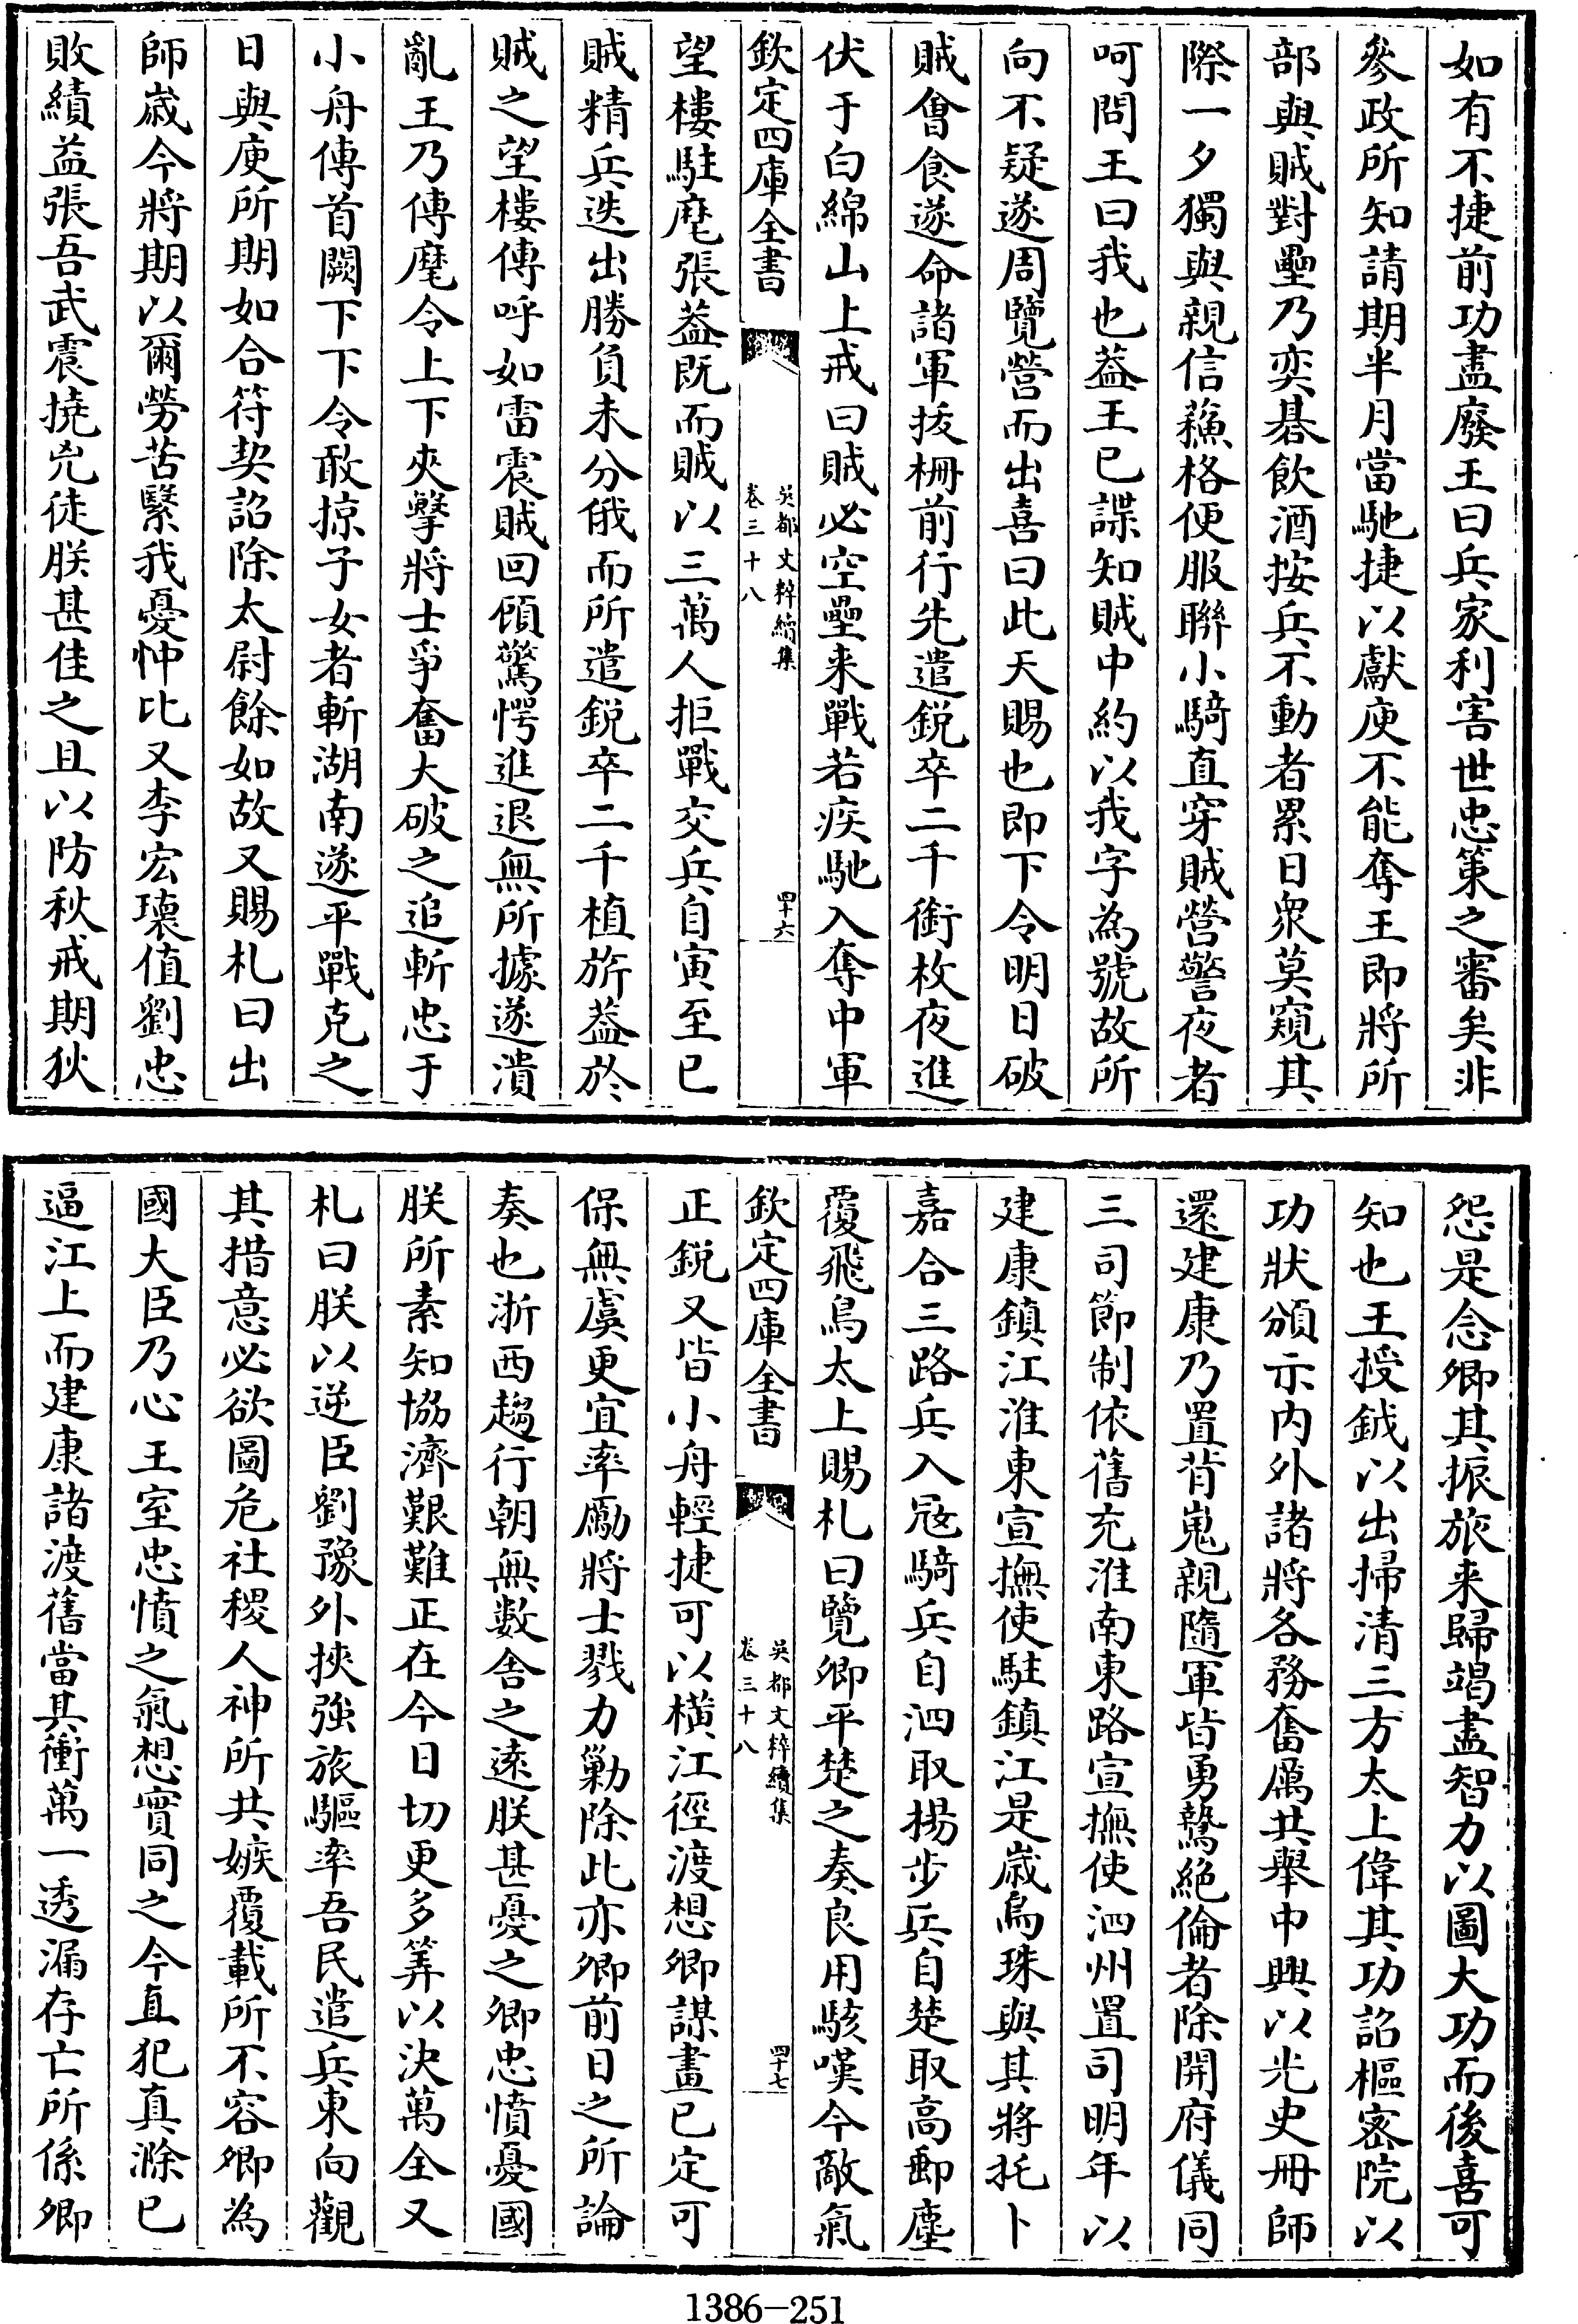 如有不捷前功盡廢王曰兵家利害世忠策之審矣非
參政所知請期半月當馳捷以獻庾不能奪王即將所
部與賊對壘乃奕碁飲酒按兵不動者累日衆莫窺其
際一夕獨與親信蘓格便服聯小騎直穿賊營警夜者
呵問王曰我也葢王已諜知賊中約以我字為號故所
向不疑遂周覽營而出喜曰此天賜也即下令明日破
賊會食遂命諸軍拔栅前行先遣鋭卒二千銜枚夜進
伏于白綿山上戒曰賊必空壘来戰若疾馳入奪中軍
欽定四庫全書 吳都文粹續集 卷三十八 四十六
望樓駐麾張葢既而賊以三萬人拒戰交兵自寅至巳
賊精兵迭出勝負未分俄而所遣鋭卒二千植旂葢於
賊之望樓傳呼如雷震賊回顧驚愕進退無所據遂潰
亂王乃傳麾令上下夾擊將士爭奮大破之追斬忠于
小舟傳首闕下下令敢掠子女者斬湖南遂平戰克之
日與庾所期如合符契詔除太尉餘如故又賜札曰出
師歲今將期以爾勞苦繄我憂忡比又李宏瓌值劉忠
敗績益張吾武震撓兇徒朕甚佳之且以防秋戒期狄
怨是念卿其振旅来歸竭盡智力以圖大功而後喜可
知也王授鉞以出掃清三方太上偉其功詔樞宻院以
功狀頒示内外諸將各務奮厲共舉中興以光史冊師
還建康乃置背嵬親隨軍皆勇鷙絶倫者除開府儀同
三司節制依舊充淮南東路宣撫使泗州置司明年以
建康鎮江淮東宣撫使駐鎮江是歲烏珠與其將托卜
嘉合三路兵入冦騎兵自泗取揚步兵自楚取高郵塵
覆飛鳥太上賜札曰覽卿平楚之奏良用駭嘆今敵氣
欽定四庫全書 吳都文粹續集 卷三十八 四十七
正鋭又皆小舟輕捷可以横江徑渡想卿謀畫已定可
保無虞更宜率勵將士戮力勦除此亦卿前日之所論
奏也浙西趨行朝無數舍之遠朕甚憂之卿忠憤憂國
朕所素知協濟艱難正在今日切更多筭以決萬全又
札曰朕以逆臣劉豫外挾強旅驅率吾民遣兵東向觀
其措意必欲圖危社稷人神所共嫉覆載所不容卿為
國大臣乃心王室忠憤之氣想實同之今直犯真滁已
逼江上而建康諸渡舊當其衝萬一透漏存亡所係卿
1386-251